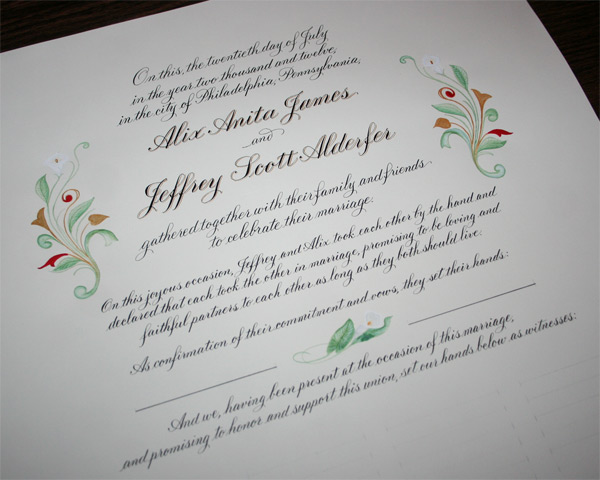 On this, the twentieth day of July
in the year two thousand and twelve,
in the city of Philadelphia, Pennsylvania,
Alix Anita James
and
Jeffrey Scott Alderfer
gathered together with their family and friends
to celebrate their marriage.
On this joyous occasion, Jeffrey and Alix took each other by the hand and
declared that each took the other in marriage, promising to be loving and
faithful partners to each other as long as they both should live.
As confirmation of their commitment and vows, they set their hands:
And we, having been present at the occasion of this marriage,
and promising to honor and support this union, set our hands below as witnesses: